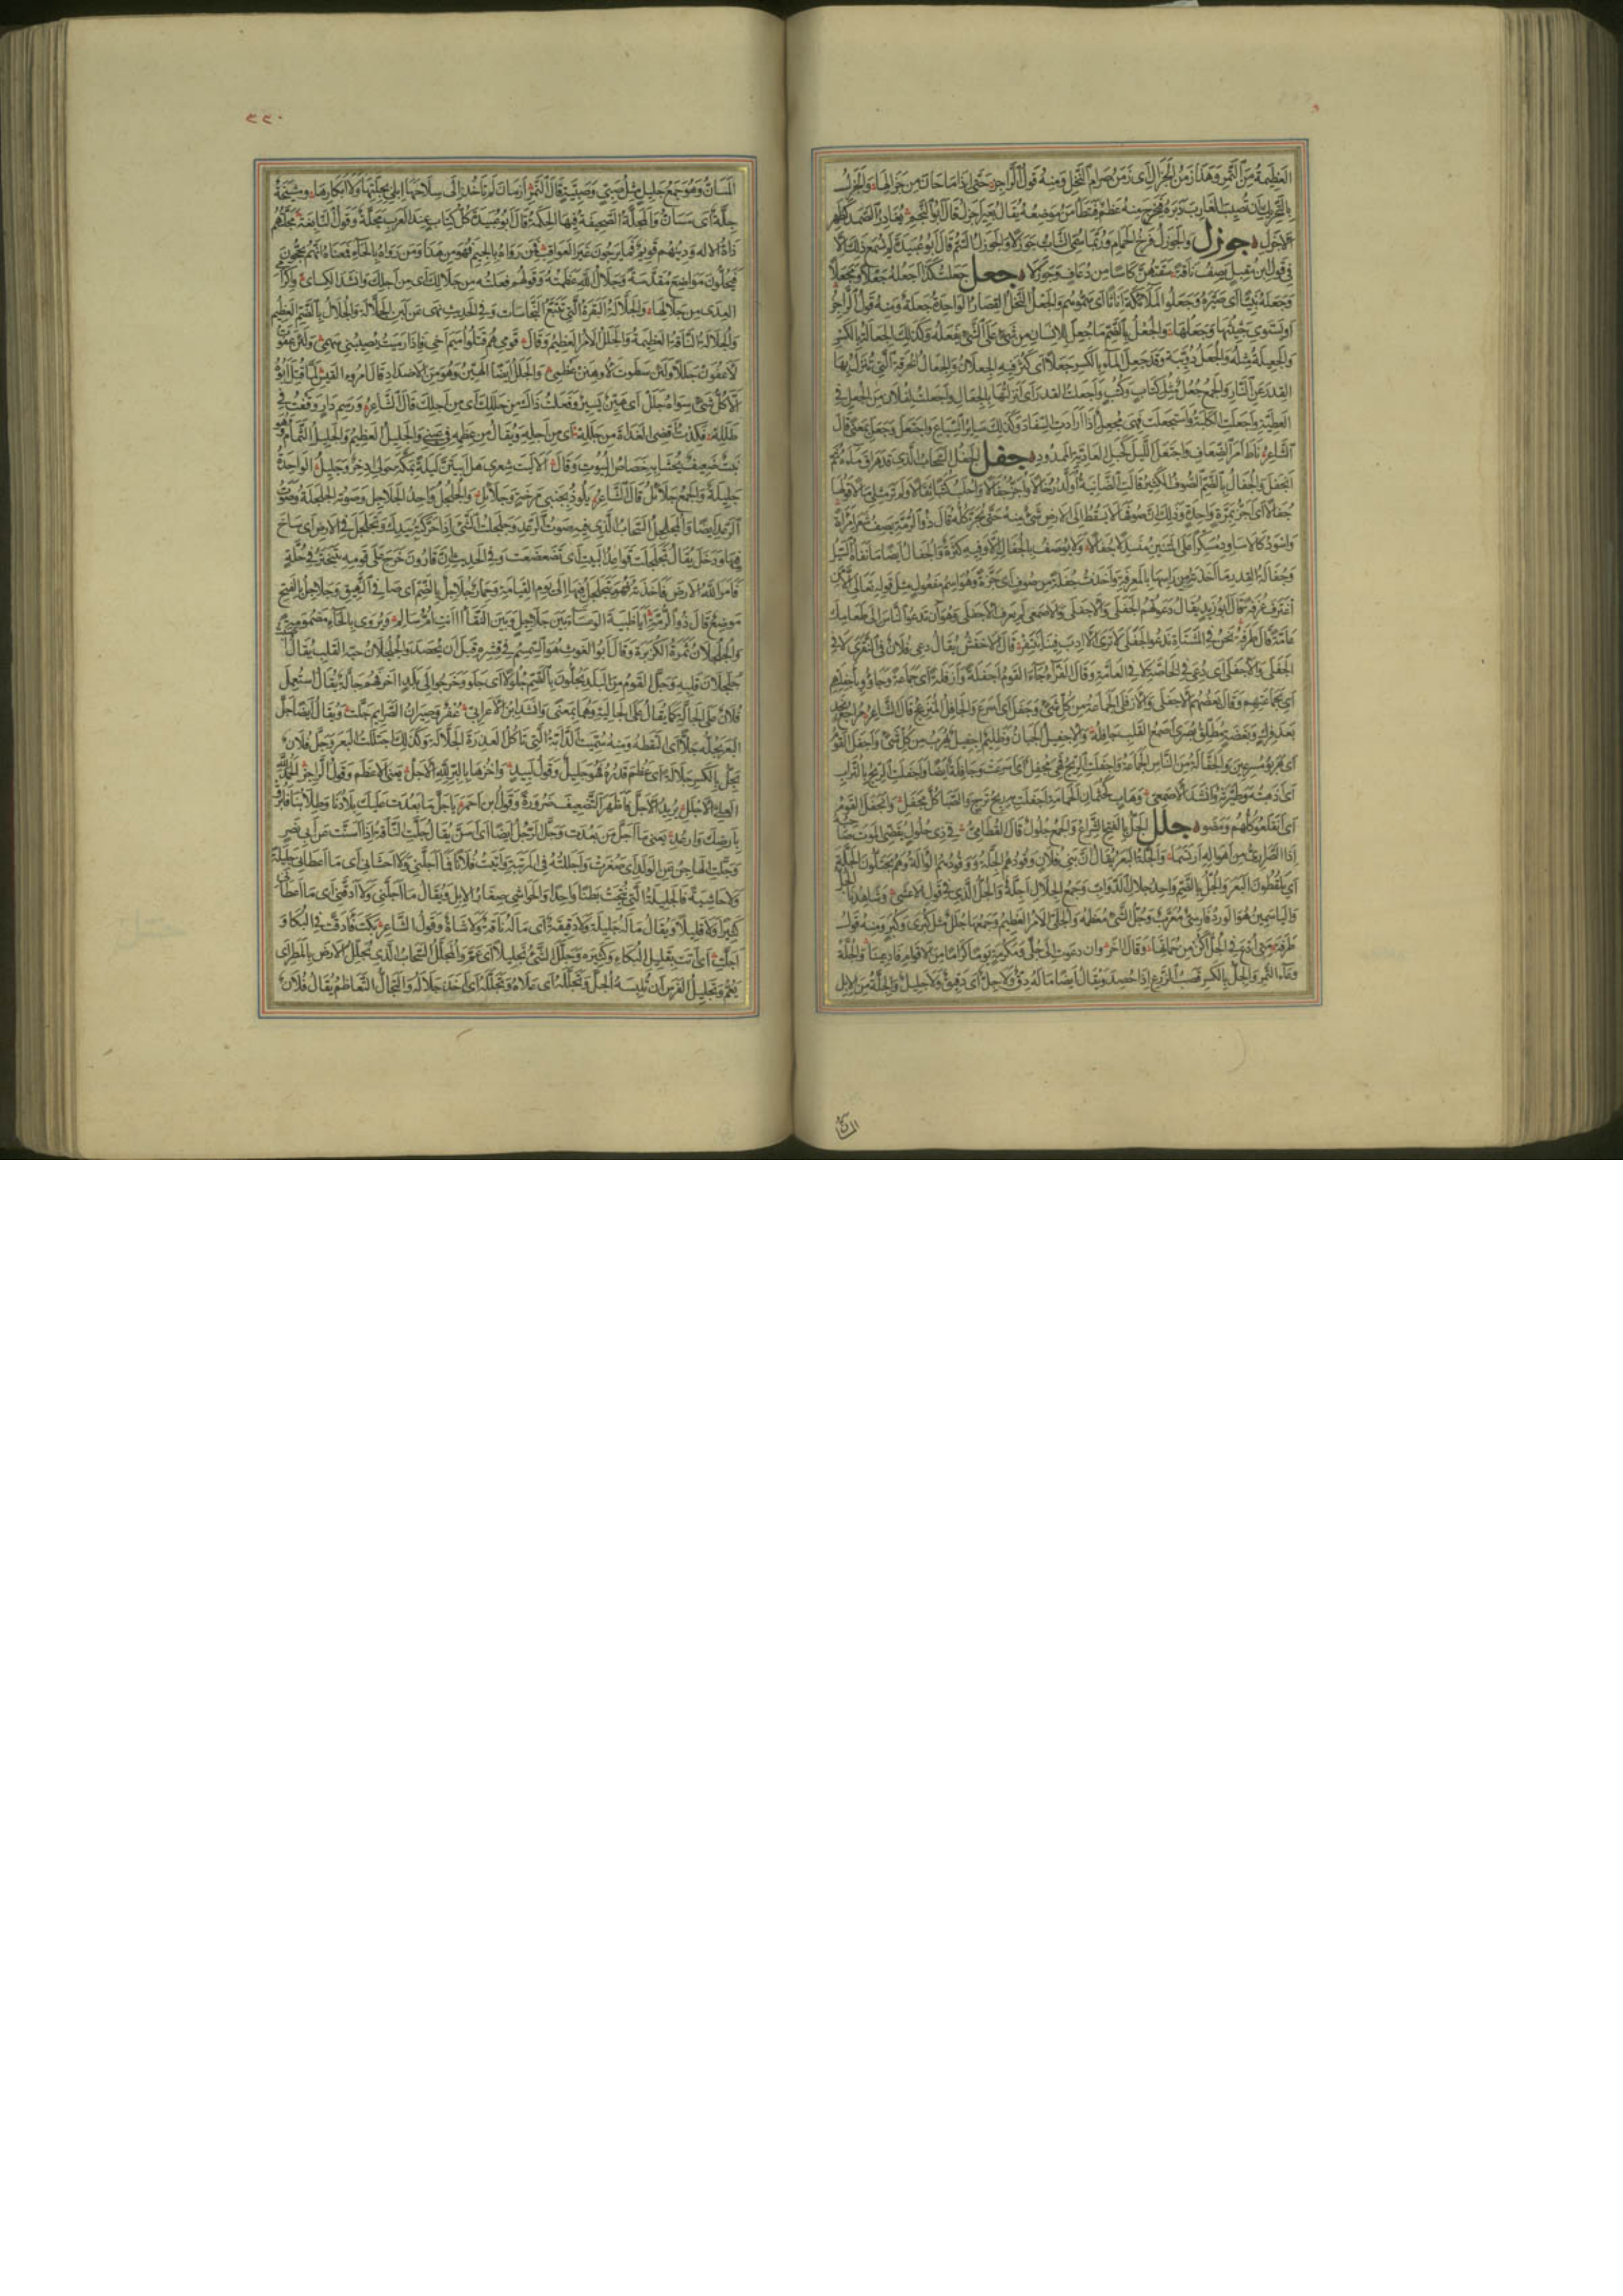 العظيمة من التمر وهذا زمن الجزال اى زمن صرام النخل ومنه قول الراجز حتى اذا ما حان من جزالها والجزل
بالتحريك ان تصيب الغارب دبرة فيخرج منه عظم فيطمأن موضعه يقال بعير اجزل قال ابو النجم يغادر الصمد كظهر
الاجزل جوزل والجوزل فرخ الحمام وربما سمى الشاب جوزلا والجوزل السم قال ابو عبيدة لم يسمع ذلك الا
فى قول ابن مقبل يصف ناقة سقتهن كاسا من ذعاف وجوزلا جعل جعلت كذا اجعله جعلا ومجعلا
وجعله نبيا اى صيره وجعلوا الملائكة اناثا اى سموهم والجعل النخل القصار الواحدة جعلة ومنه قول الراجز
او يستوى جثيثها وجعلها والجعل بالضم ما جعل للانسان من شئ على الشئ يفعله وكذلك الجعالة بالكسر
والجعيلة مثله والجعل دويبة وقد جعل الماء بالكسر جعلا اى كثر فيه الجعلان والجعال الخرقة التى تنزل بها
القدر عن النار والجمع جعل مثل كتاب وكتب واجعلت القدر اى انزلتها بالجعال واجعلت لفلان من الجعل فى
العطية واجعلت الكلبة واستجعلت فهى مجعل اذا ارادت السفاد وكذلك سائر السباع واجتعل وجعل بمعنى قال
الشاعر ناط امر الضعاف واجتعل الليل كحبل العادية الممدود جفل الجفل السحاب الذى قد هراق ماءه ثم
انجفل والجفال بالضم الصوف الكثير قالت الضائنة اولد رخالا واجز جفالا واحلب كثبا ثقالا ولم تر مثلى مالا قولها
جفالا اى اجز بمرة واحدة وذلك ان صوفها لا يسقط الى الارض شئ منه حتى يجز كله قال ذو الرمة يصف شعر امراة
واسود كالاساود مسبكرا على المتنين منسدلا جفالا ولا يوصف بالجفال الا وفيه كثرة والجفال ايضا ما نفاه السيل
وجفالة القدر ما اخذته من راسها بالمغرفة واخذت جفلة من صوف اى جزة وهو اسم مفعول مثل قوله تعالى الا من
اغترف غرفة قال ابو زيد يقال دعوتهم الجفلى والاجفلى والاصمعى لم يعرف الاجفلى وهو ان تدعو الناس الى طعامك
عامة قال طرفة نحن فى المشتاة ندعو الجفلى لا ترى الادب فينا ينتقر قال الاخفش يقال دعى فلان فى النقرى لا فى
الجفلى والاجفلى اى دعى فى الخاصة لا فى العامة وقال الفراء جاء القوم اجفلة وازفلة اى جماعة وجاؤوا باجفلتهم
اى بجماعتهم وقال بعضهم الاجفلى والازفلى الجماعة من كل شئ وجفل اى اسرع والجافل المنزعج قال الشاعر مراجع نجد
بعد فرك وبغضة مطلق بصرى اصمع القلب جافله والاجفيل الجبان وظليم اجفيل يهرب من كل شئ واجفل القوم
اى هربوا مسرعين والجفالة من الناس الجماعة واجفلت الريح فهى مجفل اى اسرعت وجافلة ايضا واجفلت الريح بالتراب
اى اذهبته وطيرته وانشد الاصمعى وهاب كجثمان الحمامة اجفلت به ريح ترج والصبا كل مجفل وانجفل القوم
اى انقلعوا كلهم ومضوا جلل الجل بالفتح الشراع والجمع جلول قال القطامى فى ذى جلول يقضى الموت صاحبه
اذا الصرارى من اهواله ارتسما والجلة البعر يقال ان بنى فلان وقودهم الجلة ووقودهم الوالة وهم يجتلون الجلة
اى يلقطون البعر والجل بالضم واحد جلال الدواب وجمع الجلال اجلة والجل الذى فى قول الاعشى وشاهدنا الجل
والياسمين هو الورد فارسى معرب وجل الشئ معظمه والجلى الامر العظيم وجمعها جلل مثل كبرى وكبر ومنه قول
طرفة متى ادع فى الجلى اكن من حماتها وقال اخر وان دعوت الى جلى ومكرمة يوما كراما من الاقوام فادعينا والجلة
وعاء التمر والجل بالكسر قصب الزرع اذا حصد ويقال ايضا ما له دق ولا جل اى دقيق ولا جليل والجلة من الابل
المسان
٢٢٠
المسان وهو جمع جليل مثل صبى وصبية قال النمر ازمان لم تاخذ الى سلاحها ابلى بجلتها ولا ابكارها ومشيخة
جلة اى مسان والمجلة الصحيفة فيها الحكمة قال ابو عبيد كل كتاب عند العرب مجلة وقول النابغة مجلتهم
ذات الاله ودينهم قويم فما يرجون غير العواقب فمن رواه بالجيم فهو من هذا ومن رواه بالحاء فمعناه انهم يحجون
فيحلون مواضع مقدسة وجلال الله عظمته وقولهم فعلته من جلالك اى من اجلك وانشد الكسائى واكرامى
العدى من جلالها والجلالة البقرة التى تتبع النجاسات وفى الحديث نهى عن لبن الجلالة والجلال بالضم العظيم
والجلالة الناقة العظيمة والجلل الامر العظيم وقال قومى هم قتلوا اميم اخى فاذا رميت يصيبنى سهمى ولئن عفوت
لاعفون جللا ولئن سطوت لاوهنن عظمى والجلل ايضا الهين وهو من الاضداد قال امرؤ القيس لما قتل ابوه
الا كل شئ سواه جلل اى هين يسير وفعلت ذاك من جللك اى من اجلك قال الشاعر ورسم دار وقفت فى
طلله فكدت اقضى الغداة من جلله اى من اجله ويقال من عظمه فى عينى والجليل العظيم والجليل الثمام وهو
نبت ضعيف يحشى به خصاص البيوت وقال الا ليت شعرى هل ابيتن ليلة بمكة حولى اذخر وجليل الواحدة
جليلة والجمع جلائل قال الشاعر يلوذ بجنبى مرخة وجلائل والجلجل واحد الجلاجل وصوته الجلجلة وصوت
الرعد ايضا والمجلجل السحاب الذى فيه صوت الرعد وجلجلت الشئ اذا حركته بيدك وتجلجل فى الارض اى ساخ
فيها ودخل يقال تجلجلت قواعد البيت اى تضعضعت وفى الحديث ان قارون خرج على قومه يتبختر فى حلة
فامر الله الارض فاخذته فهو يتجلجل فيها الى يوم القيامة وحمار جلاجل بالضم اى صافى النهيق وجلاجل بالفتح
موضع قال ذو الرمة ايا ظبية الوعساء بين جلاجل وبين النقا اانت ام ام سالم ويروى بالحاء مضمومة
والجلجلان ثمرة الكزبرة وقال ابو الغوث هو السمسم فى قشره قبل ان يحصد والجلجلان حبة القلب يقال اصبت
جلجلان قلبه وجل القوم من البلد يجلون بالضم جلولا اى جلوا وخرجوا الى بلد اخر فهم جالة يقال استعمل
فلان على الجالة كما يقال على الجالية وهما بمعنى وانشد ابن الاعرابى عفر وصيران الصريم جلت ويقال ايضا جل
البعر يجله جلا اى التقطه ومنه سميت الدابة التى تاكل العذرة الجلالة وكذلك اجتللت البعر وجل فلان
يجل بالكسر جلالة اى عظم قدره فهو جليل وقول لبيد واخزها بالبر لله الاجل يعنى الاعظم وقول الراجز الحمد لله
العلى الاجلل يريد الاجل فاظهر التضعيف ضرورة وقول ابن احمر يا جل ما بعدت عليك بلادنا وطلابنا فابرق
بارضك وارعد يعنى ما اجل من بعدت وجل الرجل ايضا اى اسن يقال جلت الناقة اذا اسنت عن ابى نصر
وجلت الهاجن عن الولد اى صغرت واجللته فى المرتبة واتيت فلانا فما اجلنى ولا احشانى اى ما اعطانى جليلة
ولا حاشية فالجليلة التى نتجت بطنا واحدا والحواشى صغار الابل ويقال ما اجلنى ولا ادقنى اى ما اعطانى
كثيرا ولا قليلا ويقال ما له جليلة ولا دقيقة اى ما له ناقة ولا شاة وقول الشاعر بكت فادقت فى البكا و
اجلت اى اتت بقليل البكاء وكثيره وجلل الشئ تجليلا اى عم والمجلل السحاب الذى يجلل الارض بالمطر اى
يعم وتجليل الفرس ان تلبسه الجل وتجلله اى علاه وتجلله اى اخذ جلاله والتجال التعاظم يقال فلان